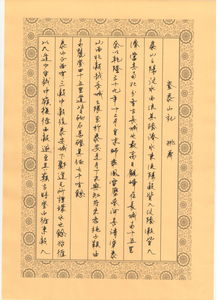 登泰山記 姚鼐
泰山之陽汶水西流其陰濟水東流陽谷皆入汶陰谷皆入
濟當其南北分者古長城也最高日觀峰在長城南十五里
余以乾隆三十九年十二月自京師乘風雪歷齊河長清穿泰
山西北谷越長城之限至於泰安是月丁未與知府朱孝純子潁由
南麓登四十五里道皆砌石為磴其級七千有餘
泰山正南面有三谷中谷繞泰安城下酈道元所謂環水也余始循
以入道少半越中嶺復循西谷遂至其巔古時登山循東谷入